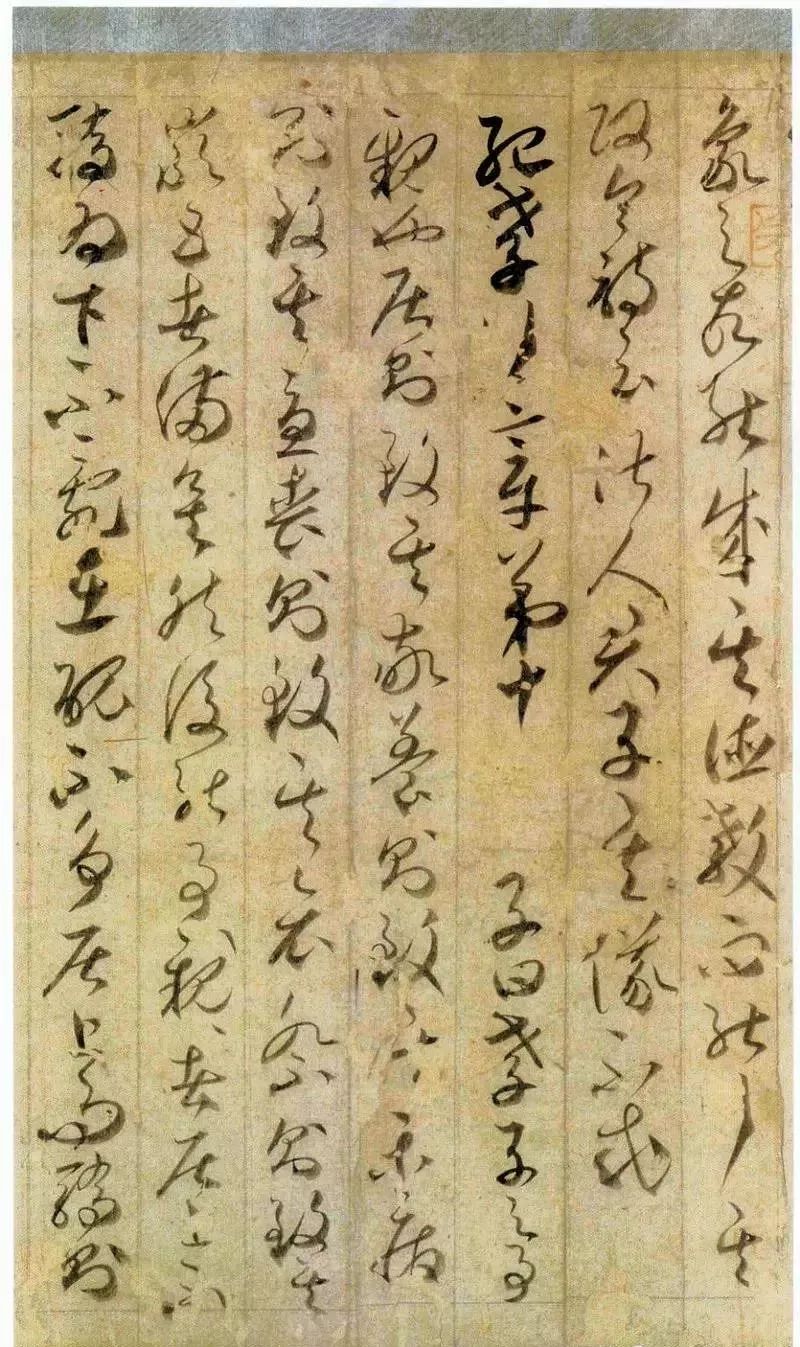 象之故能成其德教而能行其
政令詩云淑人君子其儀不忒
紀孝行章第十　子曰孝子之事
親也居則致其敬養則致其樂病
則致其憂喪則致其哀祭則致其
嚴五者備矣然後能事親々者居上不
驕為下不亂在醜不爭居上而驕則